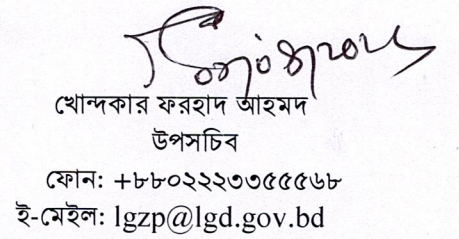 খোন্দকার ফরহাদ আহমদ
উপসচিব
ফোন: +৮৮০২২২৩৩৫৫৫৬৮
ই-মেইল: lgzp@lgd.gov.bd